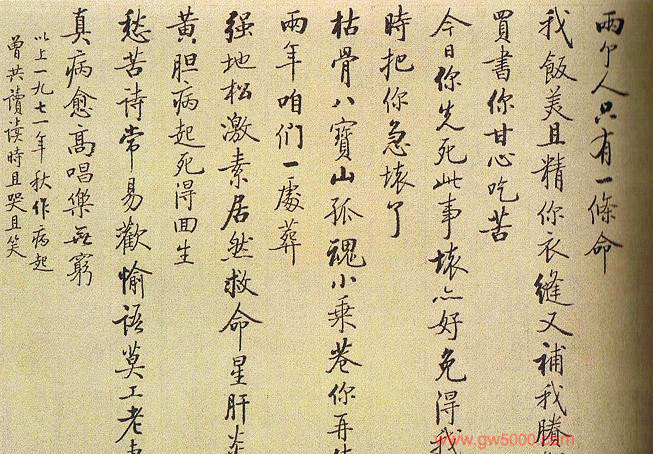 兩个人只有一條命
我飯美且精你衣縫又補我賸
買書你甘心吃苦
今日你先死此事壞亦好免得我
時把你急壞了
枯骨八寶山孤魂小乘巷你再
兩年咱们一處葬
强地松激素居然救命星肝炎
黄胆病起死得回生
愁苦诗常易歡愉語莫工老妻
真病愈高唱樂無窮
以上一九七一年秋作病起
曾共讀读時且哭且笑
www.gw5000.com